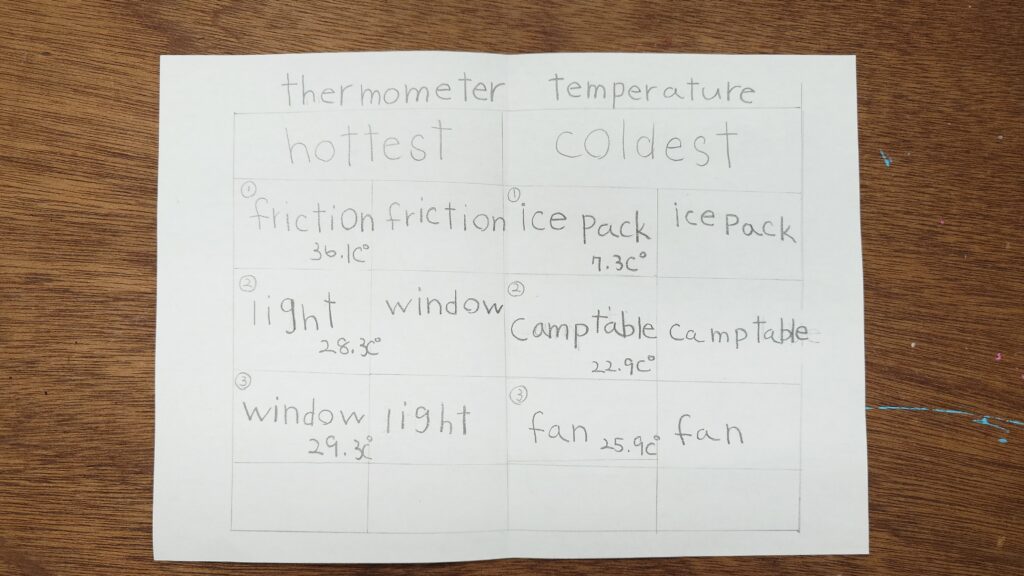 thermometer temperature
hottest coldest
① friction friction ① ice pack ice pack
36.1C° 7.3C°
② light window ② camptable camptable
28.3C° 22.9C°
③ window light ③ fan fan
29.3C° 25.9C°